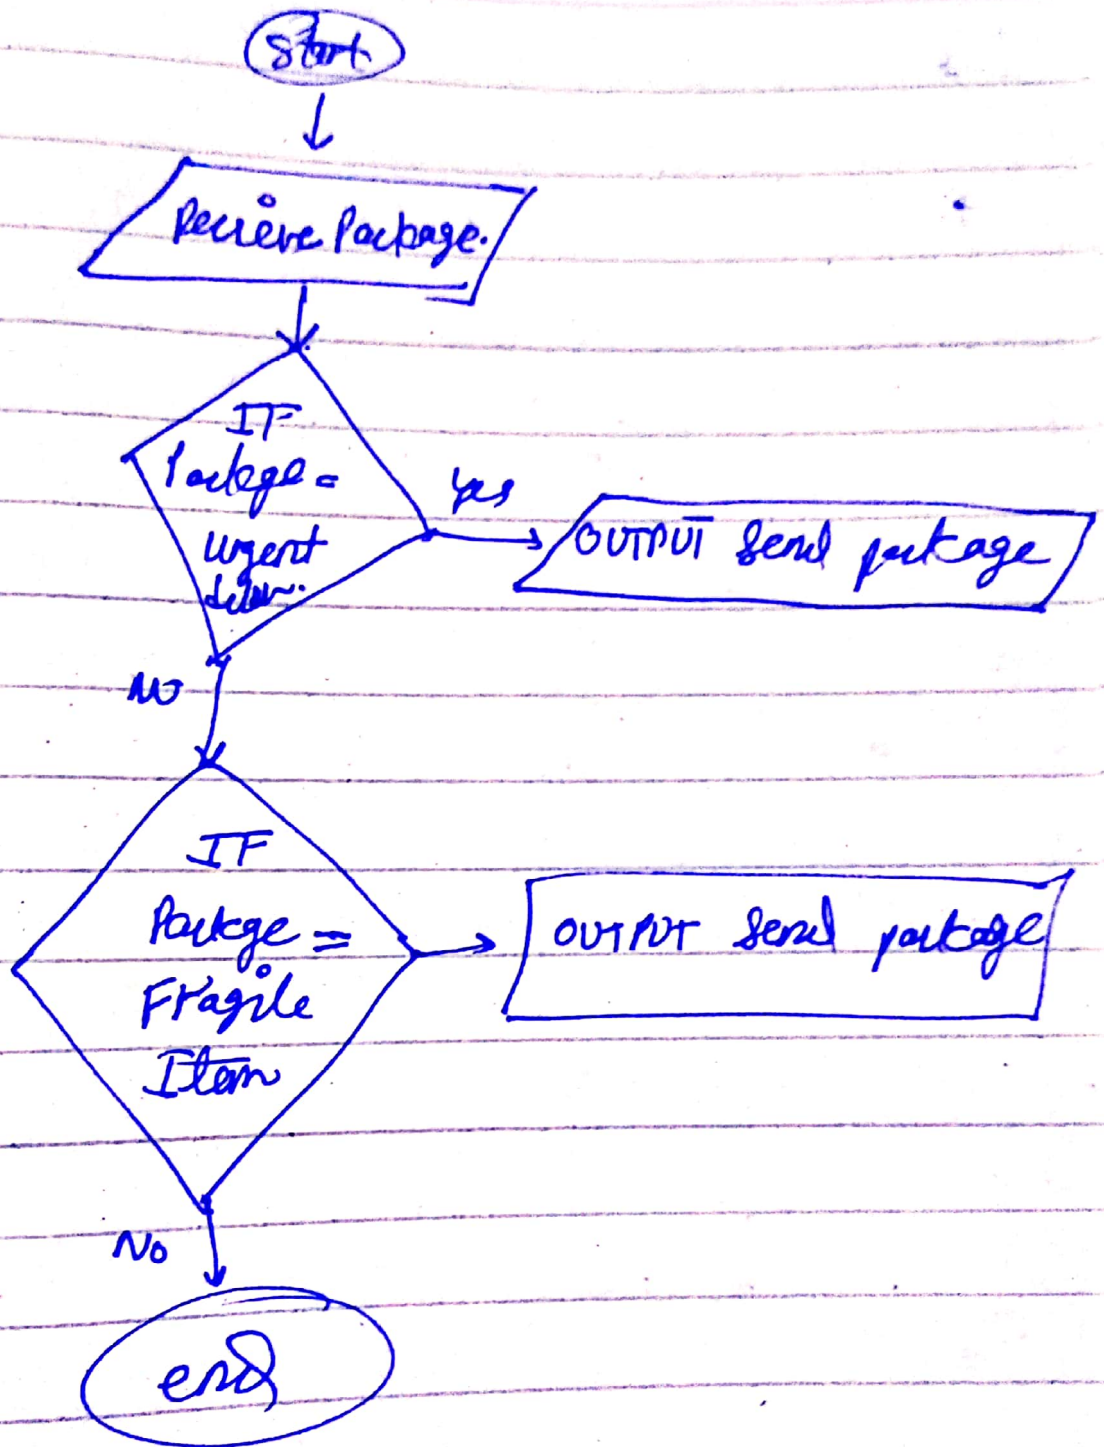 Start
Recieve Package.
IF
Package =
urgent
Yes
OUTPUT Send package
NO
IF
Package =
Fragile
Item
OUTPUT Send package
No
end